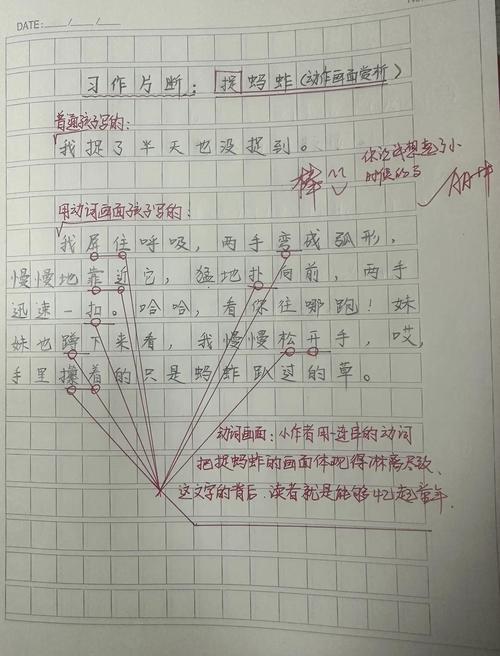 DATE:
习作片断：捉蚂蚱(动作画面赏析)
普通孩子写的：
我捉了半天也没捉到。
棒
你让我想起了小
时候的事
用动词画面孩子写的：
我屏住呼吸，两手变成弧形，
慢慢地靠近它，猛地扑向前，两手
迅速一扣。哈哈，看你往哪跑！妹
妹也蹲下来看，我慢慢松开手，哎，
手里攥着的只是蚂蚱趴过的草。
动词画面：小作者用一连串的动词
把捉蚂蚱的画面体现得淋离尽致、
这文字的背后.读者就是能够忆起童年.